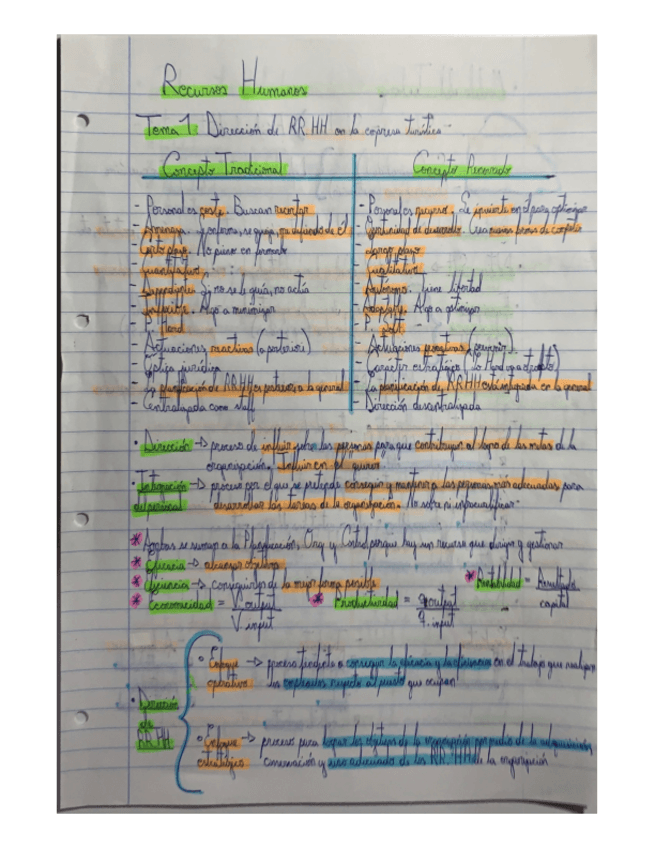 Recursos Humanos
Tema 1: Dirección de RRHH en la empresa turística
Concepto Tradicional
Concepto Renovado
- Personal es coste. Buscan recortar
- Amenaza.
- Corto plazo. No piensa en formarte
- Cuantitativo
- Dependiente. Si no se le guía, no actúa
- Inflexible. Algo a minimizar
- P. Hard
- Actuaciones reactivas (a posteriori)
- Óptica jurídica
- La planificación de RRHH es posterior a la general
- Centralizada como staff
- Personal es recurso. Se invierte en él para optimizar
- Oportunidad de desarrollo. Crea nuevas formas de competir
- Largo plazo
- Cualitativo
- Autónomo. Tiene libertad
- Adaptable. Algo a optimizar
- P. soft
- Actuaciones proactivas (prevenir)
- Carácter estratégico
- La planificación de RRHH está integrada en la general
- Dirección descentralizada
• Dirección -> proceso de influir sobre las personas para que contribuyan al logro de las metas de la
organización. Influir en el "querer"
• Integración -> proceso por el que se pretende conseguir y mantener a las personas más adecuadas para
de personal desarrollar las tareas de la organización.
* Ambas se suman a la Planificación, Org y Control porque hay un recurso que dirigir y gestionar
* Eficacia -> alcanzar objetivo
* Eficiencia -> conseguirlo de la mejor forma posible
* Rentabilidad = Resultado / capital
* Economicidad = V. output / V. input
* Productividad = q. output / q. input
• Dirección de RRHH
• Enfoque -> proceso tendente a conseguir la eficacia y la eficiencia en el trabajo que realizan
operativo los empleados respecto al puesto que ocupan
• Enfoque -> proceso para lograr los objetivos de la organización por medio de la adquisición,
estratégico conservación y uso adecuado de los RRHH de la organización